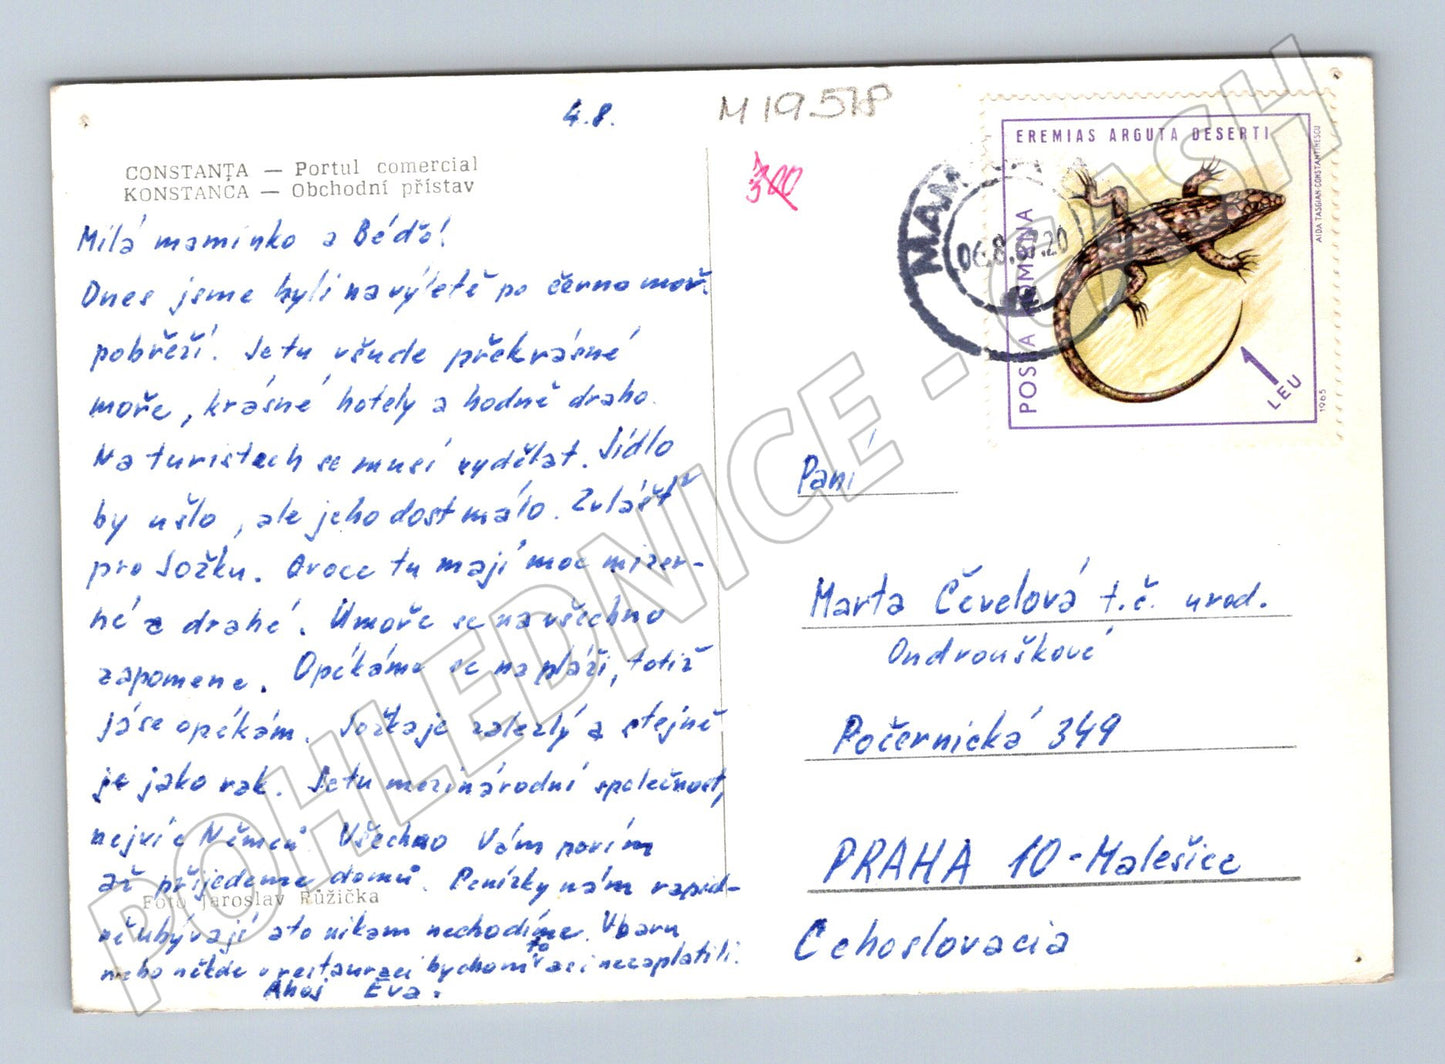 4.8.
M 19.578
CONSTANȚA — Portul comercial
KONSTANCA — Obchodní přístav
Milá maminko a Béďo!
Dnes jsme byli na výletě po černomoř.
pobřeží. Je tu všude překrásné
moře, krásné hotely a hodně draho.
Na turistech se musí vydělat. Jídlo
by ušlo, ale jeho dost málo. Zvlášť
pro Jožku. Ovoce tu mají moc mizer-
né a drahé. U moře se na všechno
zapomene. Opékáme se na pláži, totiž
já se opékám. Jožka je zalezlý a stejně
je jako rak. Je tu mezinárodní společnost,
nejvíc Němců. Všechno Vám povím
až přijedeme domů. Penízky nám rapid-
ně ubývají a to nikam nechodíme. V baru
nebo někde v restauraci bychom to asi nezaplatili.
Ahoj Eva.
Foto Jaroslav Růžička
EREMIAS ARGUTA DESERTI
POSTA ROMINA
AIDA TASGIAN-CONSTANTINESCU
1 LEU
1965
MAN
06.8.67.20
Paní
Marta Čevelová t.č. urod.
Ondrouškové
Počernická 349
PRAHA 10 - Malešice
Cehoslovacia
POHLEDNICE - CASH